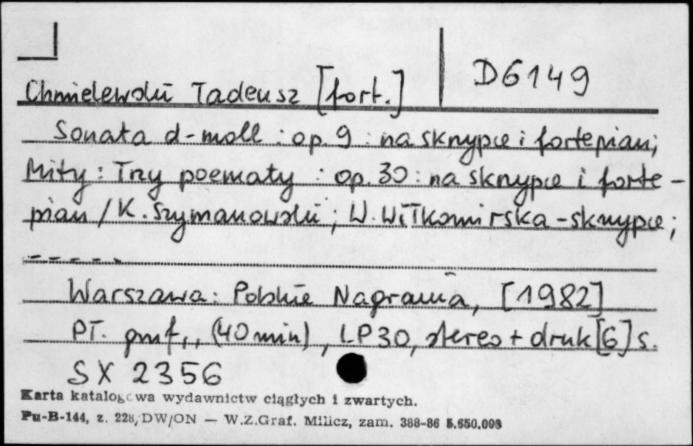 D6149
Chmielewski Tadeusz [fort.]
Sonata d-moll : op. 9 : na skrzypce i fortepian;
Mity : Trzy poematy : op. 30 : na skrzypce i forte-
pian / K. Szymanowski ; W. Wiłkomirska - skrzypce ;
- - - - -
Warszawa : Polskie Nagrania, [1982]
Pł. gmf,, (40 min), LP30, stereo + druk [6] s.
SX 2356
Karta katalogowa wydawnictw ciągłych i zwartych.
Pu-B-144, z. 228/DW/ON — W.Z.Graf. Milicz, zam. 388-86 5.650.000